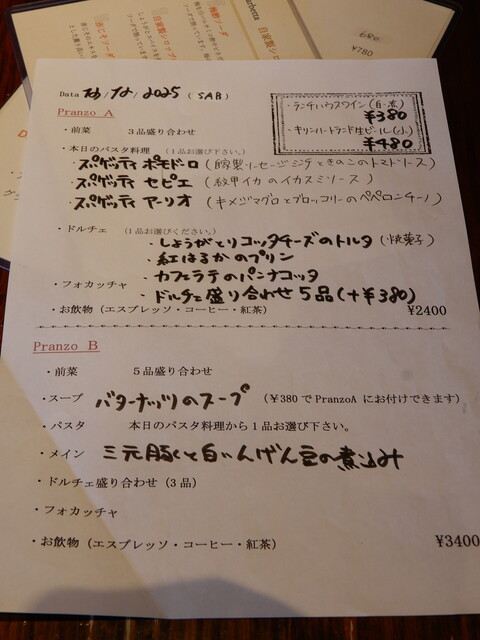 自家製シロップ
¥780
Data 13/12/2025 (SAB)
・ランチハウスワイン(白・赤)
¥380
・キリンハートランド生ビール(小)
¥480
Pranzo A
・前菜 3品盛り合わせ
・本日のパスタ料理 (1品お選び下さい。)
・スパゲッティ ポモドーロ (自家製ソーセージときのこのトマトソース)
・スパゲッティ セピエ (紋甲イカのイカスミソース)
・スパゲッティ アーリオ (キメジマグロとブロッコリーのペペロンチーノ)
・ドルチェ (1品お選びください。)
・しょうがとリコッタチーズのトルタ(焼菓子)
・紅はるかのプリン
・カフェラテのパンナコッタ
・ドルチェ盛り合わせ5品(+¥380)
・フォカッチャ
・お飲物 (エスプレッソ・コーヒー・紅茶) ¥2400
Pranzo B
・前菜 5品盛り合わせ
・スープ バターナッツのスープ (¥380でPranzoAにお付けできます)
・パスタ 本日のパスタ料理から1品お選び下さい。
・メイン 三元豚と白いんげん豆の煮込み
・ドルチェ盛り合わせ (3品)
・フォカッチャ
・お飲物 (エスプレッソ・コーヒー・紅茶) ¥3400